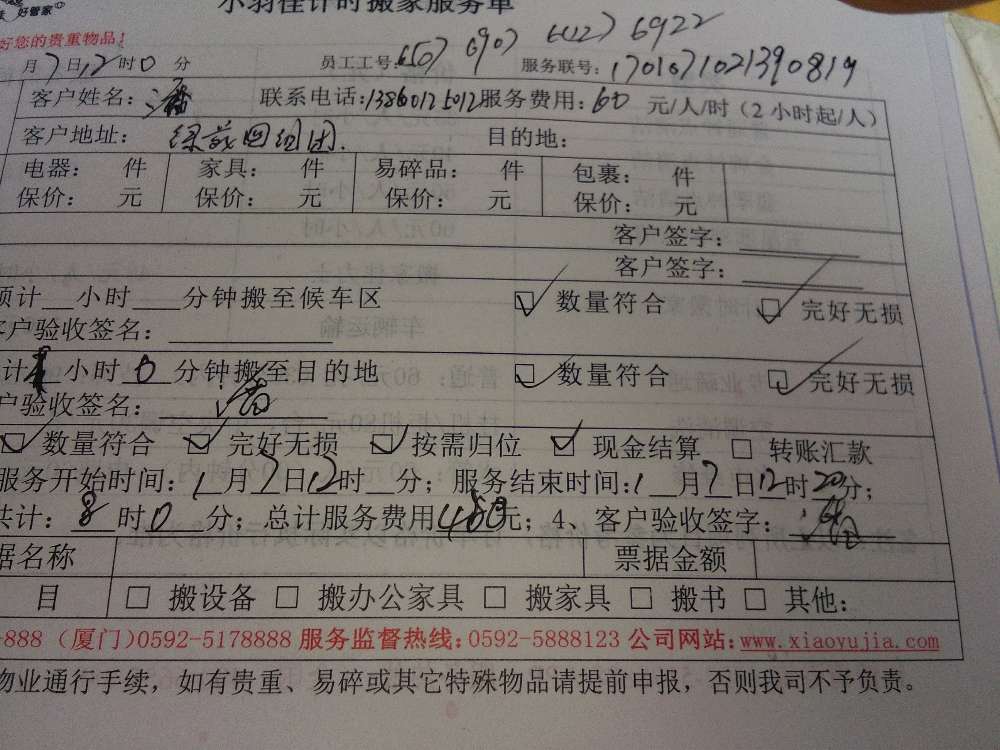 好管家 小羽佳计时搬家服务单
好您的贵重物品!
月7日12时0分 员工工号: 6507 6907 6027 6922 服务联号: 170107102139 0819
客户姓名: 潘 联系电话: 13860125012 服务费用: 60 元/人/时(2小时起/人)
客户地址: 四组团. 目的地:
电器: 件 家具: 件 易碎品: 件 包裹: 件
保价: 元 保价: 元 保价: 元 保价: 元
客户签字:
客户签字:
预计__小时___分钟搬至候车区 ☑ 数量符合 ☑ 完好无损
客户验收签名:
计1小时0分钟搬至目的地 ☑ 数量符合 ☑ 完好无损
户验收签名: 潘
☑ 数量符合 ☑ 完好无损 ☑ 按需归位 ☑ 现金结算 □ 转账汇款
服务开始时间: 1月7日12时__分; 服务结束时间: 1月7日12时20分;
共计: 8时0分; 总计服务费用480元; 4、客户验收签字: 潘
据名称 票据金额
目 □ 搬设备 □ 搬办公家具 □ 搬家具 □ 搬书 □ 其他:
-888 (厦门)0592-5178888 服务监督热线: 0592-5888123 公司网站: www.xiaoyujia.com
物业通行手续,如有贵重、易碎或其它特殊物品请提前申报,否则我司不予负责。